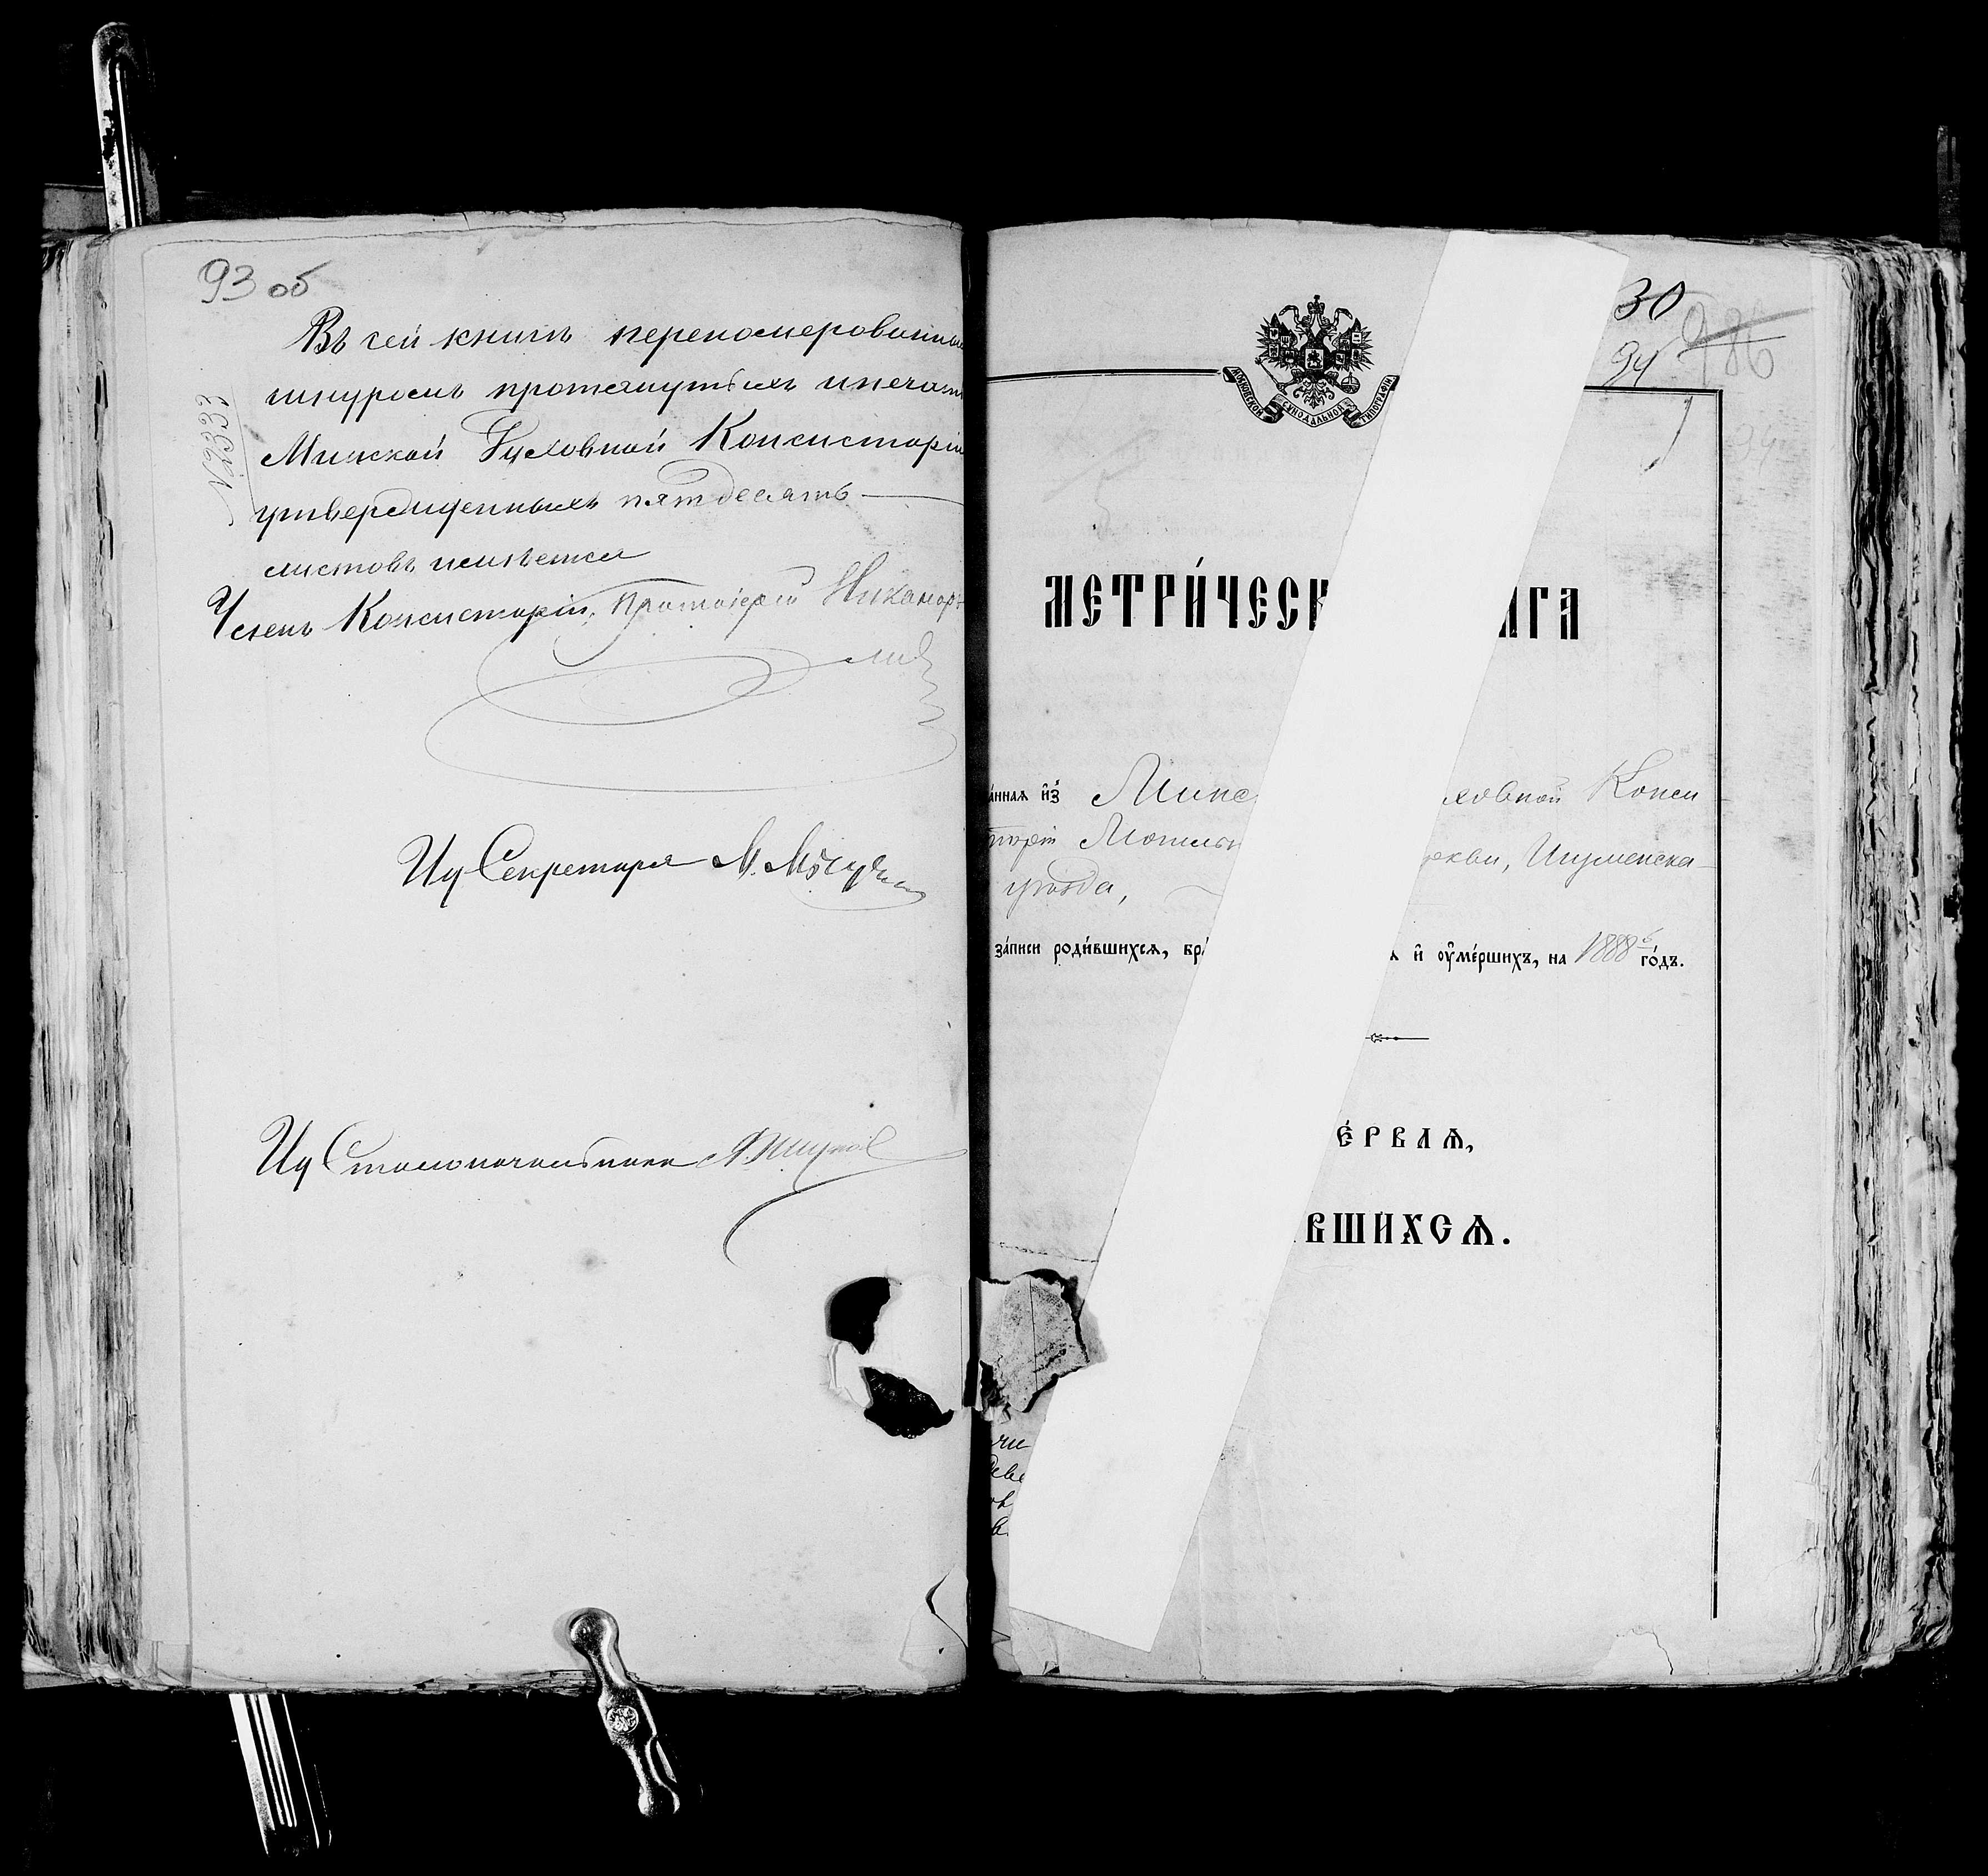 93 об
Въ сей книгѣ перенумерованны
шнуромъ протянутыхъ и печат
Минской Духовной Консисторіи
утвержденныхъ пятдесятъ
листовъ имѣется
Членъ Консисторіи, Протоіерей Никаноръ
№ 3333
Ид Секретаря М.
Ид Столоначальника
30
94
986
МОСКОВСКОЙ СѴНОДАЛЬНОЙ ТИПОГРАФІИ
МЕТРИ́ЧЕСК ИГА
а́нная и҆з̾ Минс ховной Конси
торіи Могиль ркви, Игуменска
уѣзда,
за́писи роди́вшихсѧ, бра́ ѧ и҆ оу҆ме́ршихъ, на 1888 й го́дъ.
Е́РВАѦ,
ВШИХСѦ.